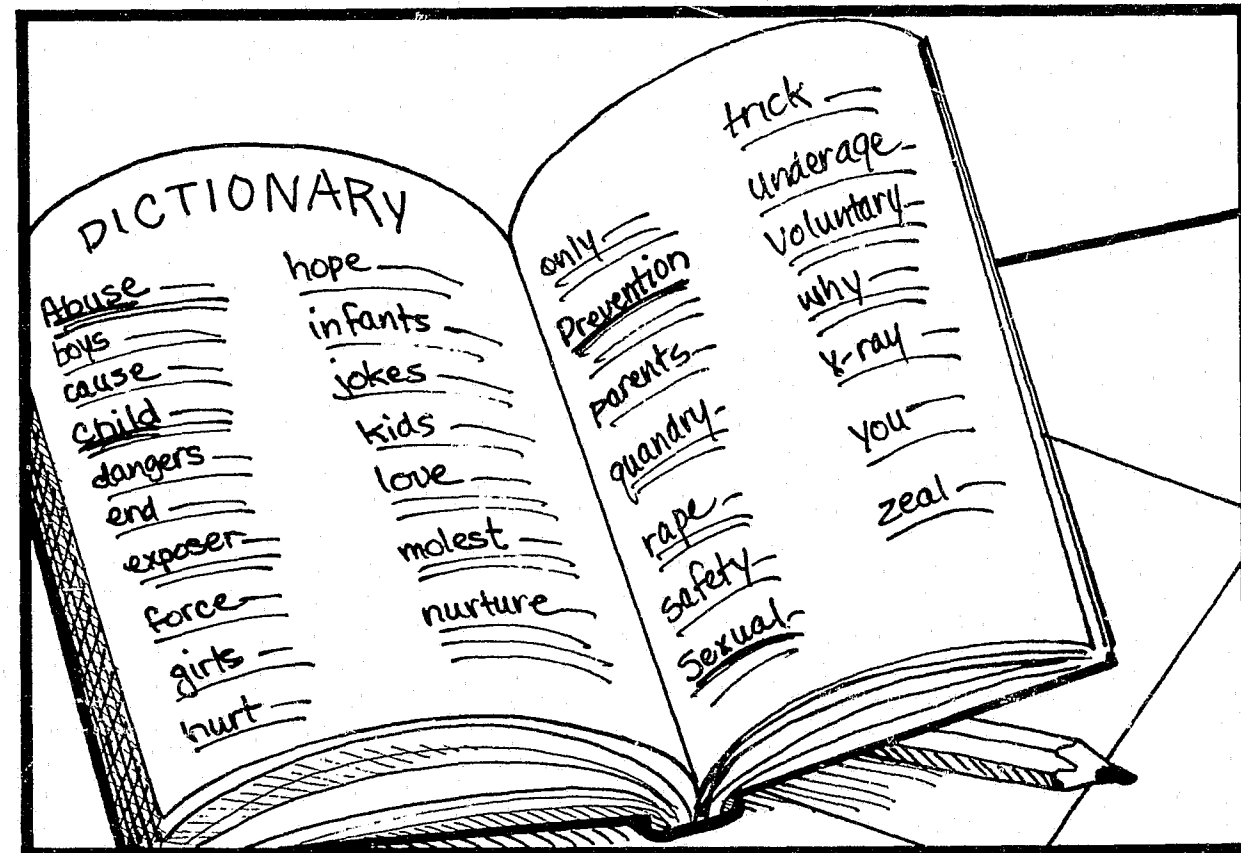 DICTIONARY
Abuse
boys
cause
Child
dangers
end
exposer
force
girls
hurt
hope
infants
jokes
kids
love
molest
nurture
only
Prevention
parents
quandry
rape
safety
Sexual
trick
underage
voluntary
why
x-ray
you
zeal